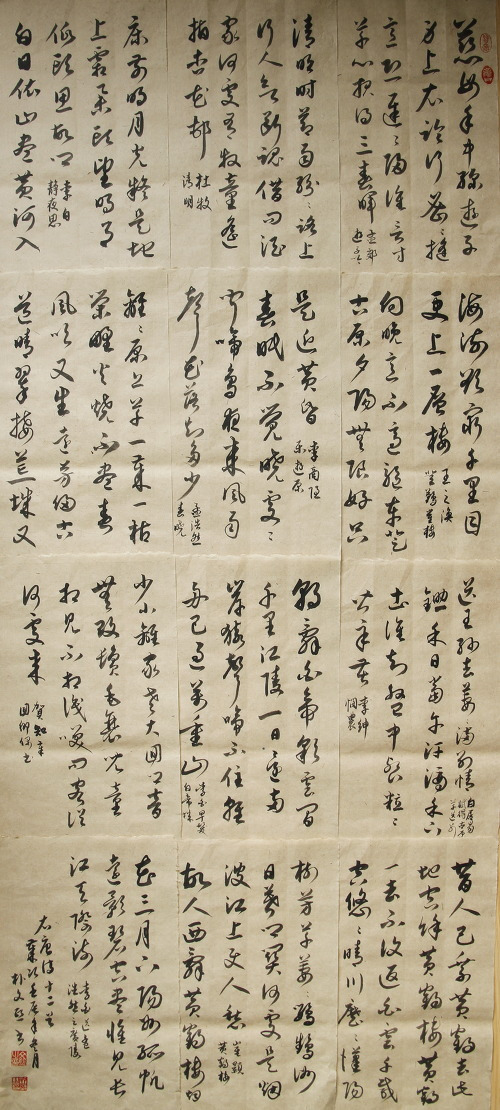 慈母手中線遊子
身上衣臨行密〻縫
意恐遲〻歸誰言寸
草心報得三春暉 孟郊
遊子吟
清明時節雨紛〻路上
行人欲斷魂借問酒
家何處有牧童遙
指杏花邨 杜牧
清明
床前明月光疑是地
上霜舉頭望明月
低頭思故鄉 李白
靜夜思
白日依山盡黃河入
海流欲窮千里目
更上一層樓 王之渙
登鸛雀樓
向晚意不適驅車登
古原夕陽無限好只
是近黃昏 李商隱
樂遊原
春眠不覺曉處〻
聞啼鳥夜來風雨
聲花落知多少 孟浩然
春曉
離〻原上草一歲一枯
榮野火燒不盡春
風吹又生遠芳侵古
道晴翠接荒城又
送王孫去萋〻滿別情 白居易
賦得古原
草送別
鋤禾日當午汗滴禾下
土誰知盤中餐粒〻
皆辛苦 李紳
憫農
朝辭白帝彩雲間
千里江陵一日還兩
岸猿聲啼不住輕
舟已過萬重山 李白早發
白帝城
少小離家老大回鄉音
無改鬢毛衰兒童
相見不相識笑問客從
何處來 賀知章
回鄉偶書
昔人已乘黃鶴去此
地空餘黃鶴樓黃鶴
一去不復返白雲千載
空悠〻晴川歷〻漢陽
樹芳草萋〻鸚鵡洲
日暮鄉關何處是煙
波江上使人愁 崔顥
黃鶴樓
故人西辭黃鶴樓煙
花三月下揚州孤帆
遠影碧空盡惟見長
江天際流 李白送孟
浩然之廣陵
右唐詩十二首
歲次壬辰年 月
朴文 書